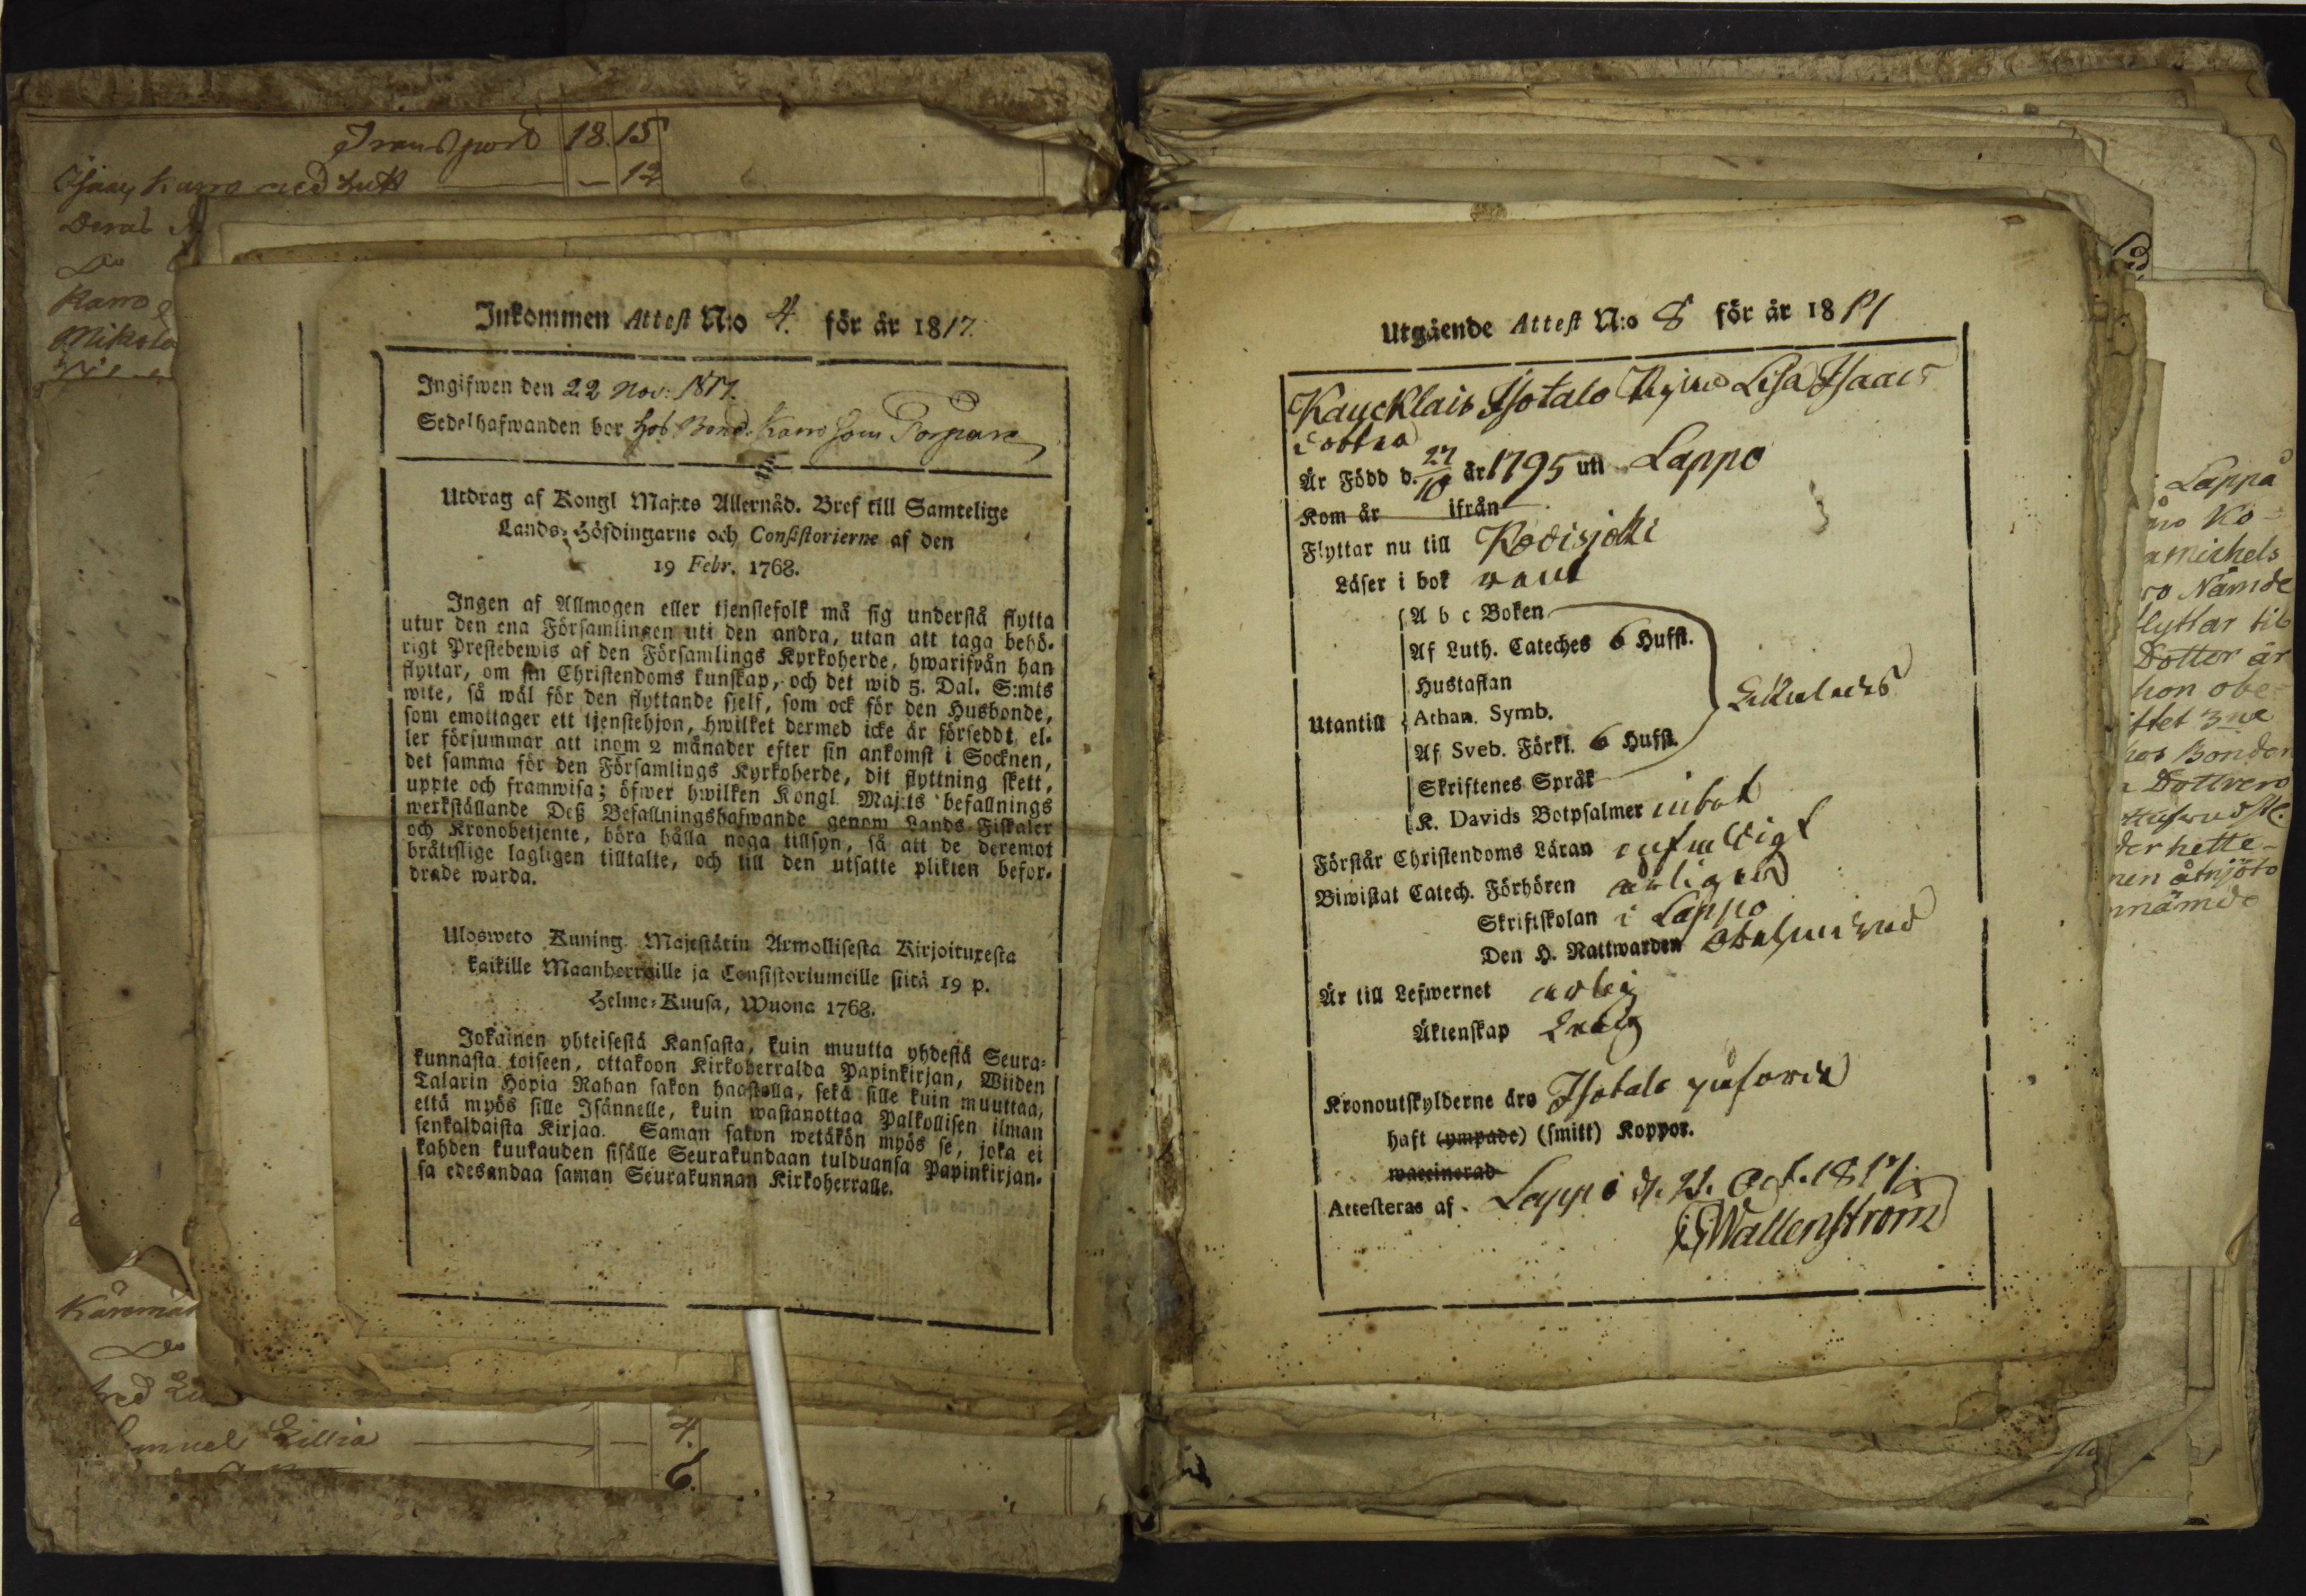 Transport 18. 15
– 12
Karro
Inkommen Attest N:o 4. för år 1817.
Ingifwen den 22 Nov: 1817.
Sedelhafwanden bor hos Bond. Karro som Torpare
Utdrag af Kongl Maj:ts Allernåd. Bref till Samtelige
Lands-Höfdingarne och Consistorierne af den
19 Febr. 1768.
Ingen af Allmogen eller tjenstefolk må sig understå flytta
utur den ena Församlingen uti den andra, utan att taga behö-
rigt Prestebewis af den Församlings Kyrkoherde, hwarifrån han
flyttar, om sin Christendoms kunskap, och det wid 5. Dal. S:mts
wite, så wäl för den flyttande sjelf, som ock för den Husbonde,
som emottager ett tjenstehjon, hwilket dermed icke är försedt, el-
ler försummar att inom 2 månader efter sin ankomst i Socknen,
det samma för den Församlings Kyrkoherde, dit flyttning skett,
uppte och framwisa; öfwer hwilken Kongl. Maj:ts befallnings
werkställande Deß Befallningshafwande genom Lands-Fiskaler
och Kronobetjente, böra hålla noga tillsyn, så att de deremot
bråttslige lagligen tilltalte, och till den utsatte plikten befor-
drade warda.
Ulosweto Kuning. Majestätin Armollisesta Kirjoituxesta
kaikille Maanherraille ja Consistoriumeille siitä 19 p.
Helme-Kuusa, Wuona 1768.
Jokainen yhteisestä Kansasta, kuin muutta yhdestä Seura-
kunnasta toiseen, ottakoon Kirkoherralda Papinkirjan, Wiiden
Talarin Hopia Rahan sakon haastolla, sekä sille kuin muuttaa,
että myös sille Isännelle, kuin wastanottaa Palkollisen ilman
senkaldaista Kirjaa. Saman sakon wetäkön myös se, joka ei
kahden kuukauden sisälle Seurakundaan tulduansa Papinkirjan-
sa edesandaa saman Seurakunnan Kirkoherralle.
Lillia
4.
6.
Utgående Attest N:o 8 för år 1817
Kaucklais Isotalo Pigan Lisa Isaacs
dotter
Är Född d. 27/10 år 1795 uti Lappo
Kom år ifrån
Flyttar nu till Kodisjoki
Läser i bok rent
A b c Boken
Af Luth. Cateches 6 Hufst.
Hustaflan
Utantill Athan. Symb.
Af Sveb. Förkl. 6 Hufst.
Skriftenes Språk
K. Davids Botpsalmer i bok
Förstår Christendoms Läran enfaldigt
Biwistat Catech. Förhören årligen
Skriftskolan i Lappo
Den H. Nattwarden
Är till Lefwernet ärlig
Äktenskap Ledig
Kronoutskylderne äro Isotalo påförda
haft (ympade) (smitt) Koppor.
waccinerad
Attesteras af. Lappo d. 21. Oct. 1817
Wallenström
Lappå
Ko-
michels
Nämde
flyttar til
Dotter är
hon obe-
3ne
hos Bonden
Dottrero
der hette-
åtnjöto
nämde